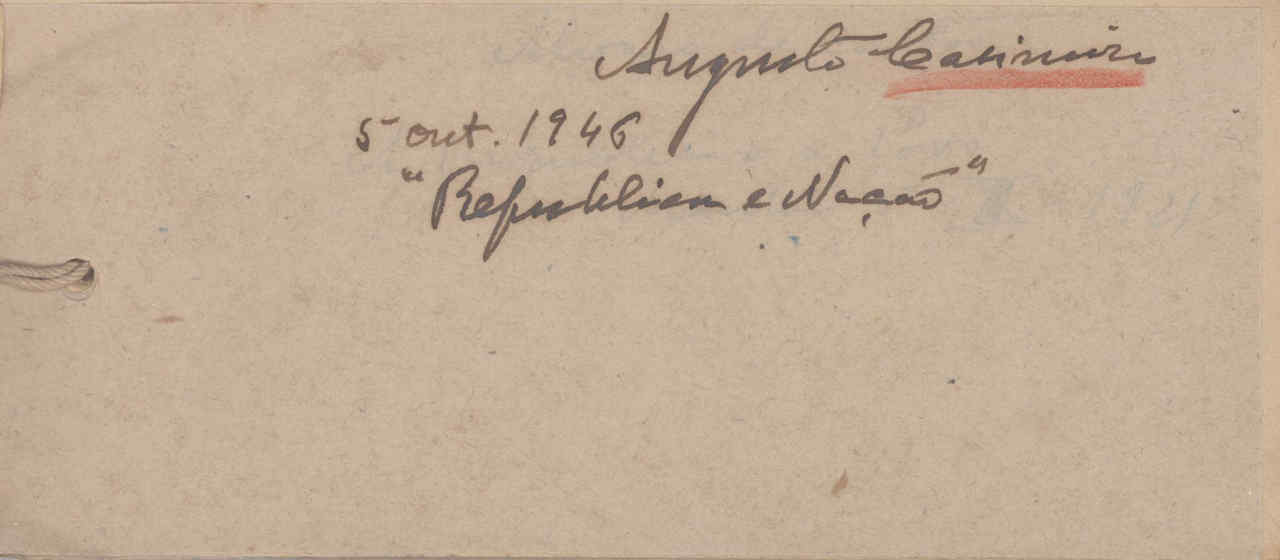 Augusto Casimiro
5 out. 1946
"Republica e Nação"